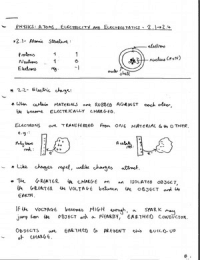 PHYSICS: ATOMS, ELECTRICITY AND ELECTROSTATICS - 2.1→2.4
• 2.1 - Atomic structure:
Protons 1 1
Neutrons 1 0
Electrons neg. -1
electrons
nucleus (P+N)
shell
• 2.2 - Electric charge:
• When certain MATERIALS are RUBBED AGAINST each other,
they become ELECTRICALLY CHARGED.
ELECTRONS are TRANSFERRED from ONE MATERIAL to OTHER.
e.g:-
Polythene
rod:
Acetate
• Like charges repel, unlike charges attract.
• The GREATER the CHARGE on an ISOLATED OBJECT,
the GREATER the VOLTAGE between the OBJECT and the
EARTH.
If the VOLTAGE becomes HIGH enough, a SPARK may
jump from the OBJECT and a NEARBY, EARTHED CONDUCTOR.
OBJECTS are EARTHED to PREVENT the BUILD-UP
of CHARGE.